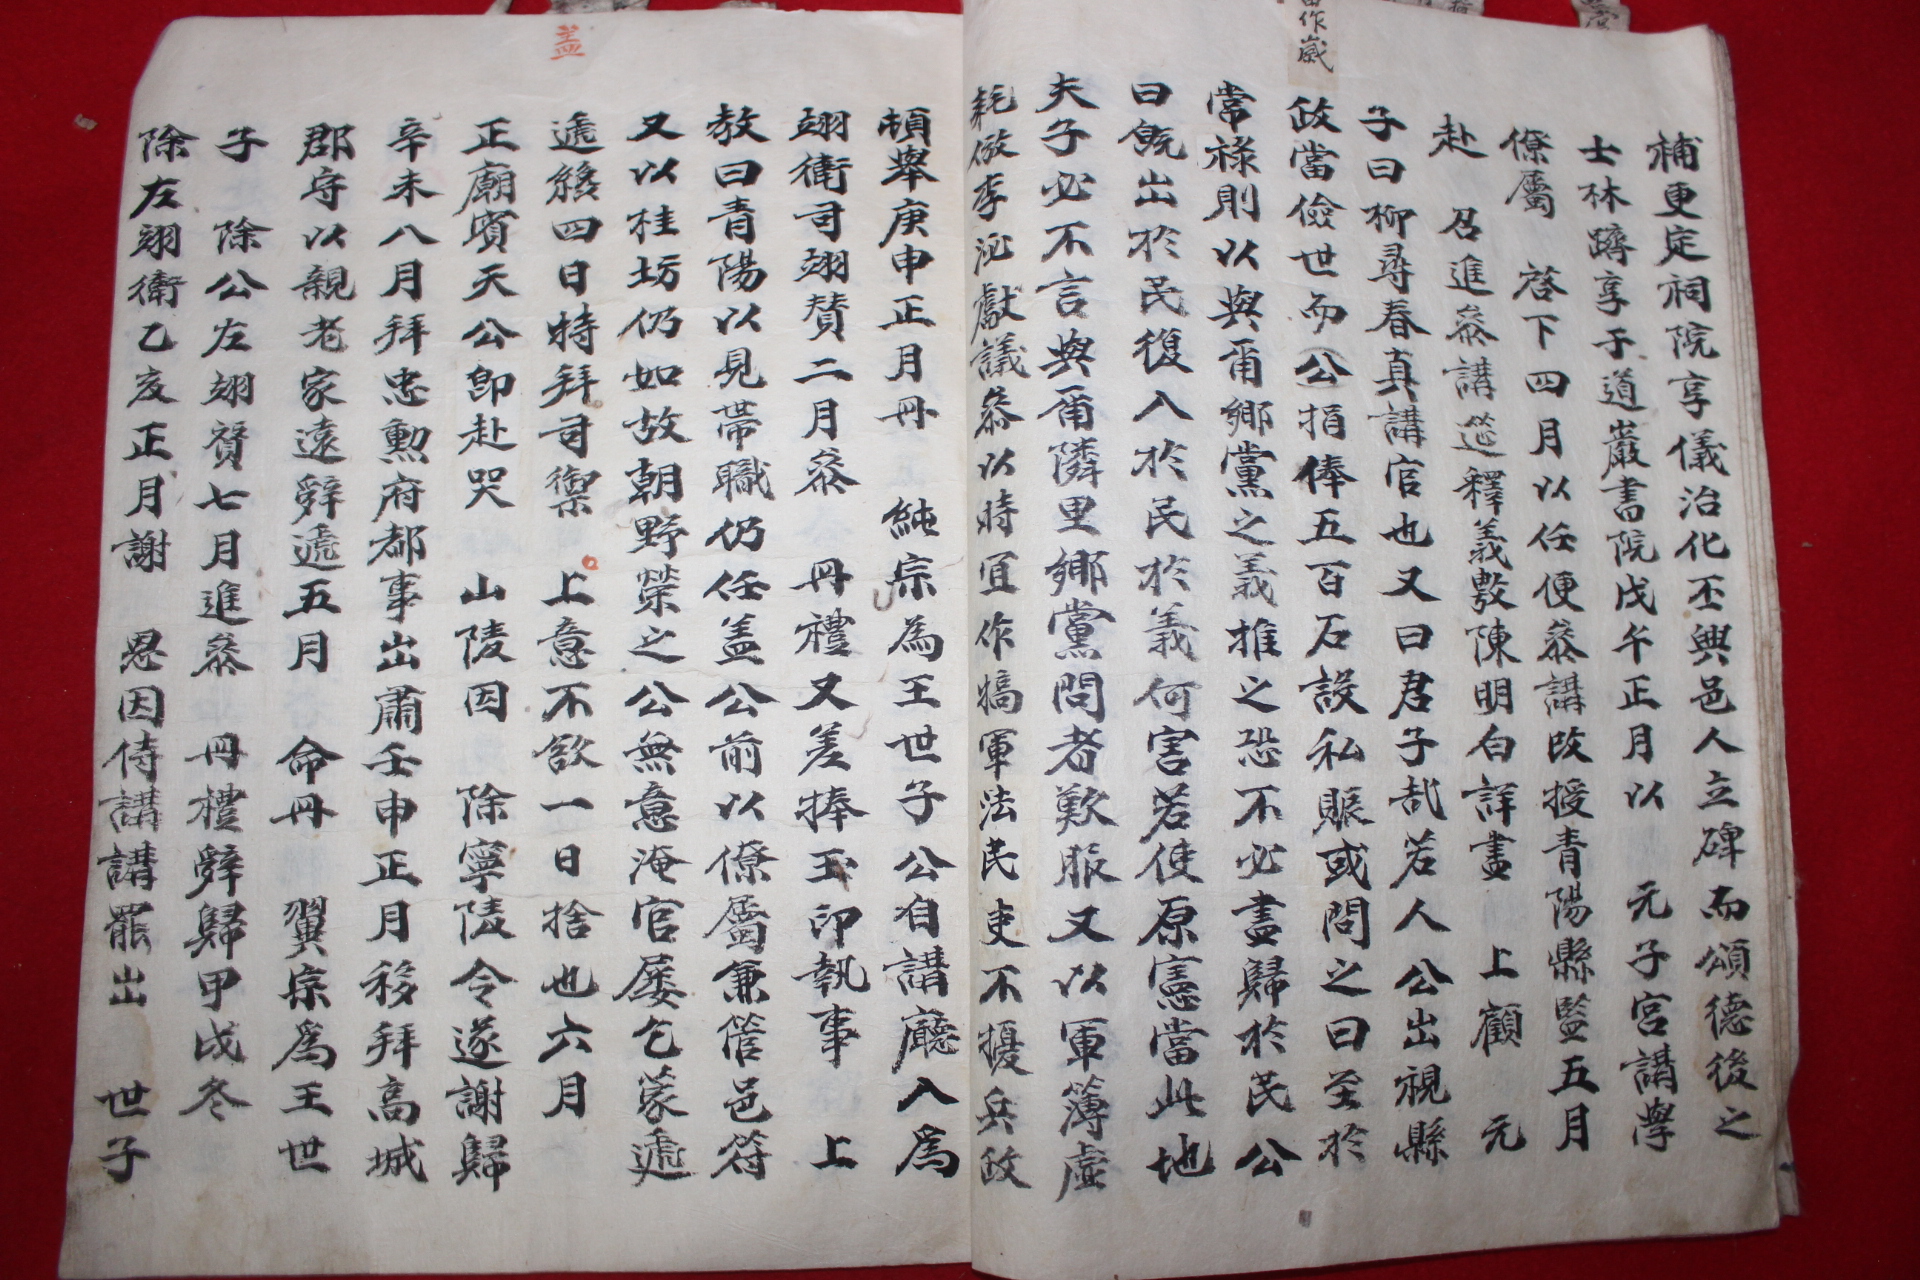 補更定祠院享儀治化丕興邑人立碑而頌德後之
士林躋享于道巖書院戊午正月以 元子宮講學
僚屬 啓下四月以任便叅講改授靑陽縣監五月
赴 召進叅講筵釋義敷陳明白詳盡 上顧 元
子曰柳尋春真講官也又曰君子哉若人公出視縣
政當儉世而公捐俸五百石設私賑或問之曰至於
常祿則以與甭鄉黨之義推之恐不必盡歸於民公
曰旣出於民復入於民於義何害若使原憲當此地
夫子必不言與甭隣里鄉黨問者歎服又以軍簿虛
耗倣李泌獻議叅以時宜作犒軍法民吏不擾兵政
頓擧庚申正月丹 純宗為王世子公自講廳入爲
翊衛司翊賛二月叅 丹禮又差捧玉印執事 上
敎曰青陽以見帶職仍任盖公前以僚屬兼管邑符
又以桂坊仍如故朝野榮之公無意淹官屡乞蒙遞
遞䋣四日特拜司禦 上意不欲一日捨也六月
正廟賓天公卽赴哭 山陵因 除寧陵令遂謝歸
辛未八月拜忠勳府都事出肅壬申正月移拜高城
郡守以親老家遠辭遞五月 命丹 翼宗爲王世
子 除公左翊賛七月進叅 丹禮辭歸甲戌冬
除左翊衛乙亥正月謝 恩因侍講講罷出 世子
盖
作歲